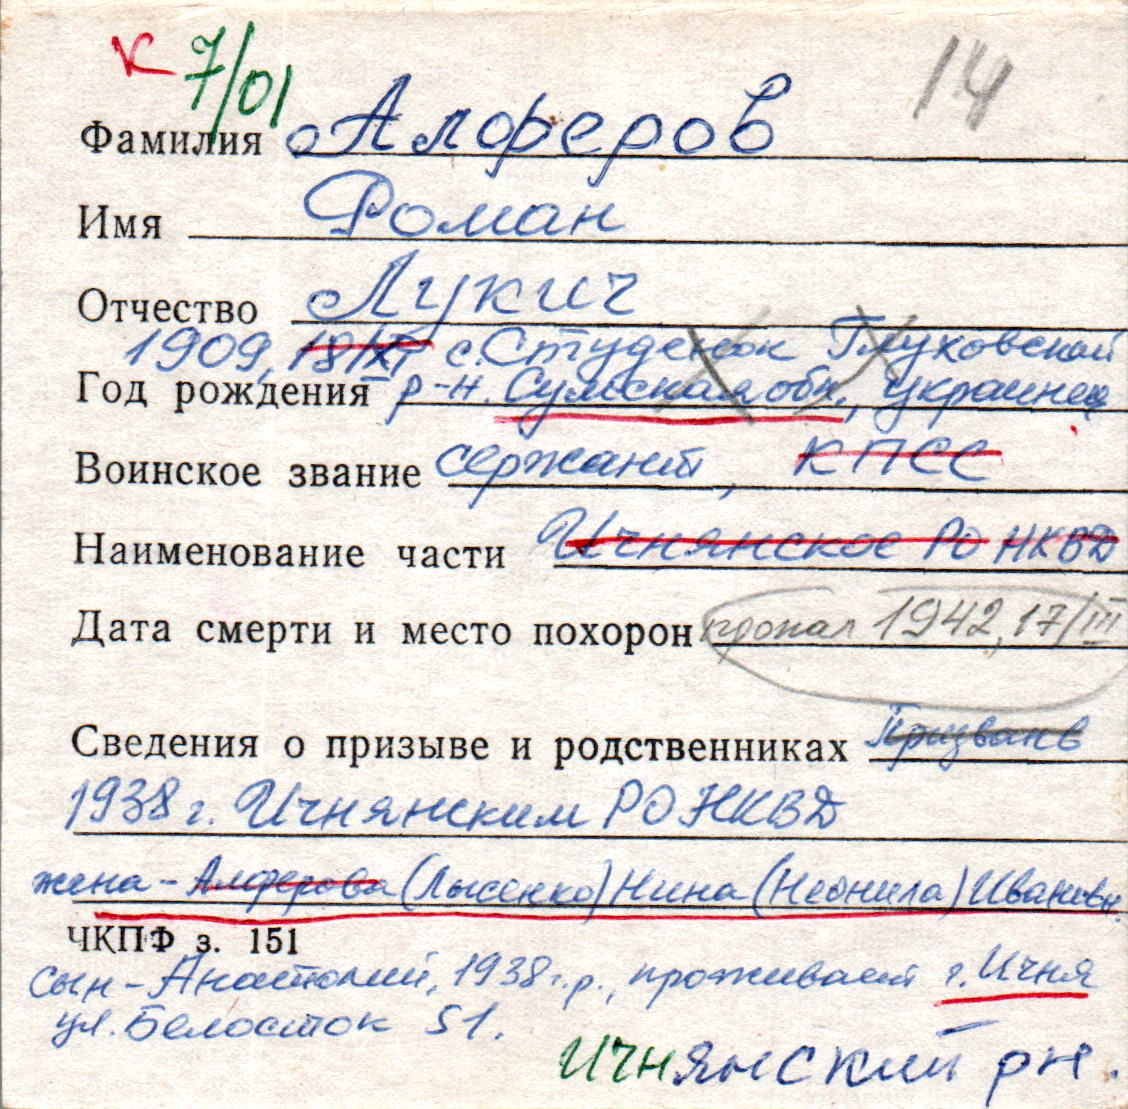 К 7/01
14
Фамилия Алферов
Имя Роман
Отчество Лукич
1909, 18/XI с. Студенок Глуховской
Год рождения р-н. Сумская обл., украинец
Воинское звание сержант, КПСС
Наименование части Ичнянское РО НКВД
Дата смерти и место похорон пропал 1942, 17/III
Сведения о призыве и родственниках Призван в
1938 г. Ичнянским РО НКВД
жена - Алферова (Лысенко) Нина (Неонила) Ивановн.
ЧКПФ з. 151
сын - Анатолий, 1938 г.р., проживает г. Ичня
ул. Белосток 51.
Ичнянский рн.